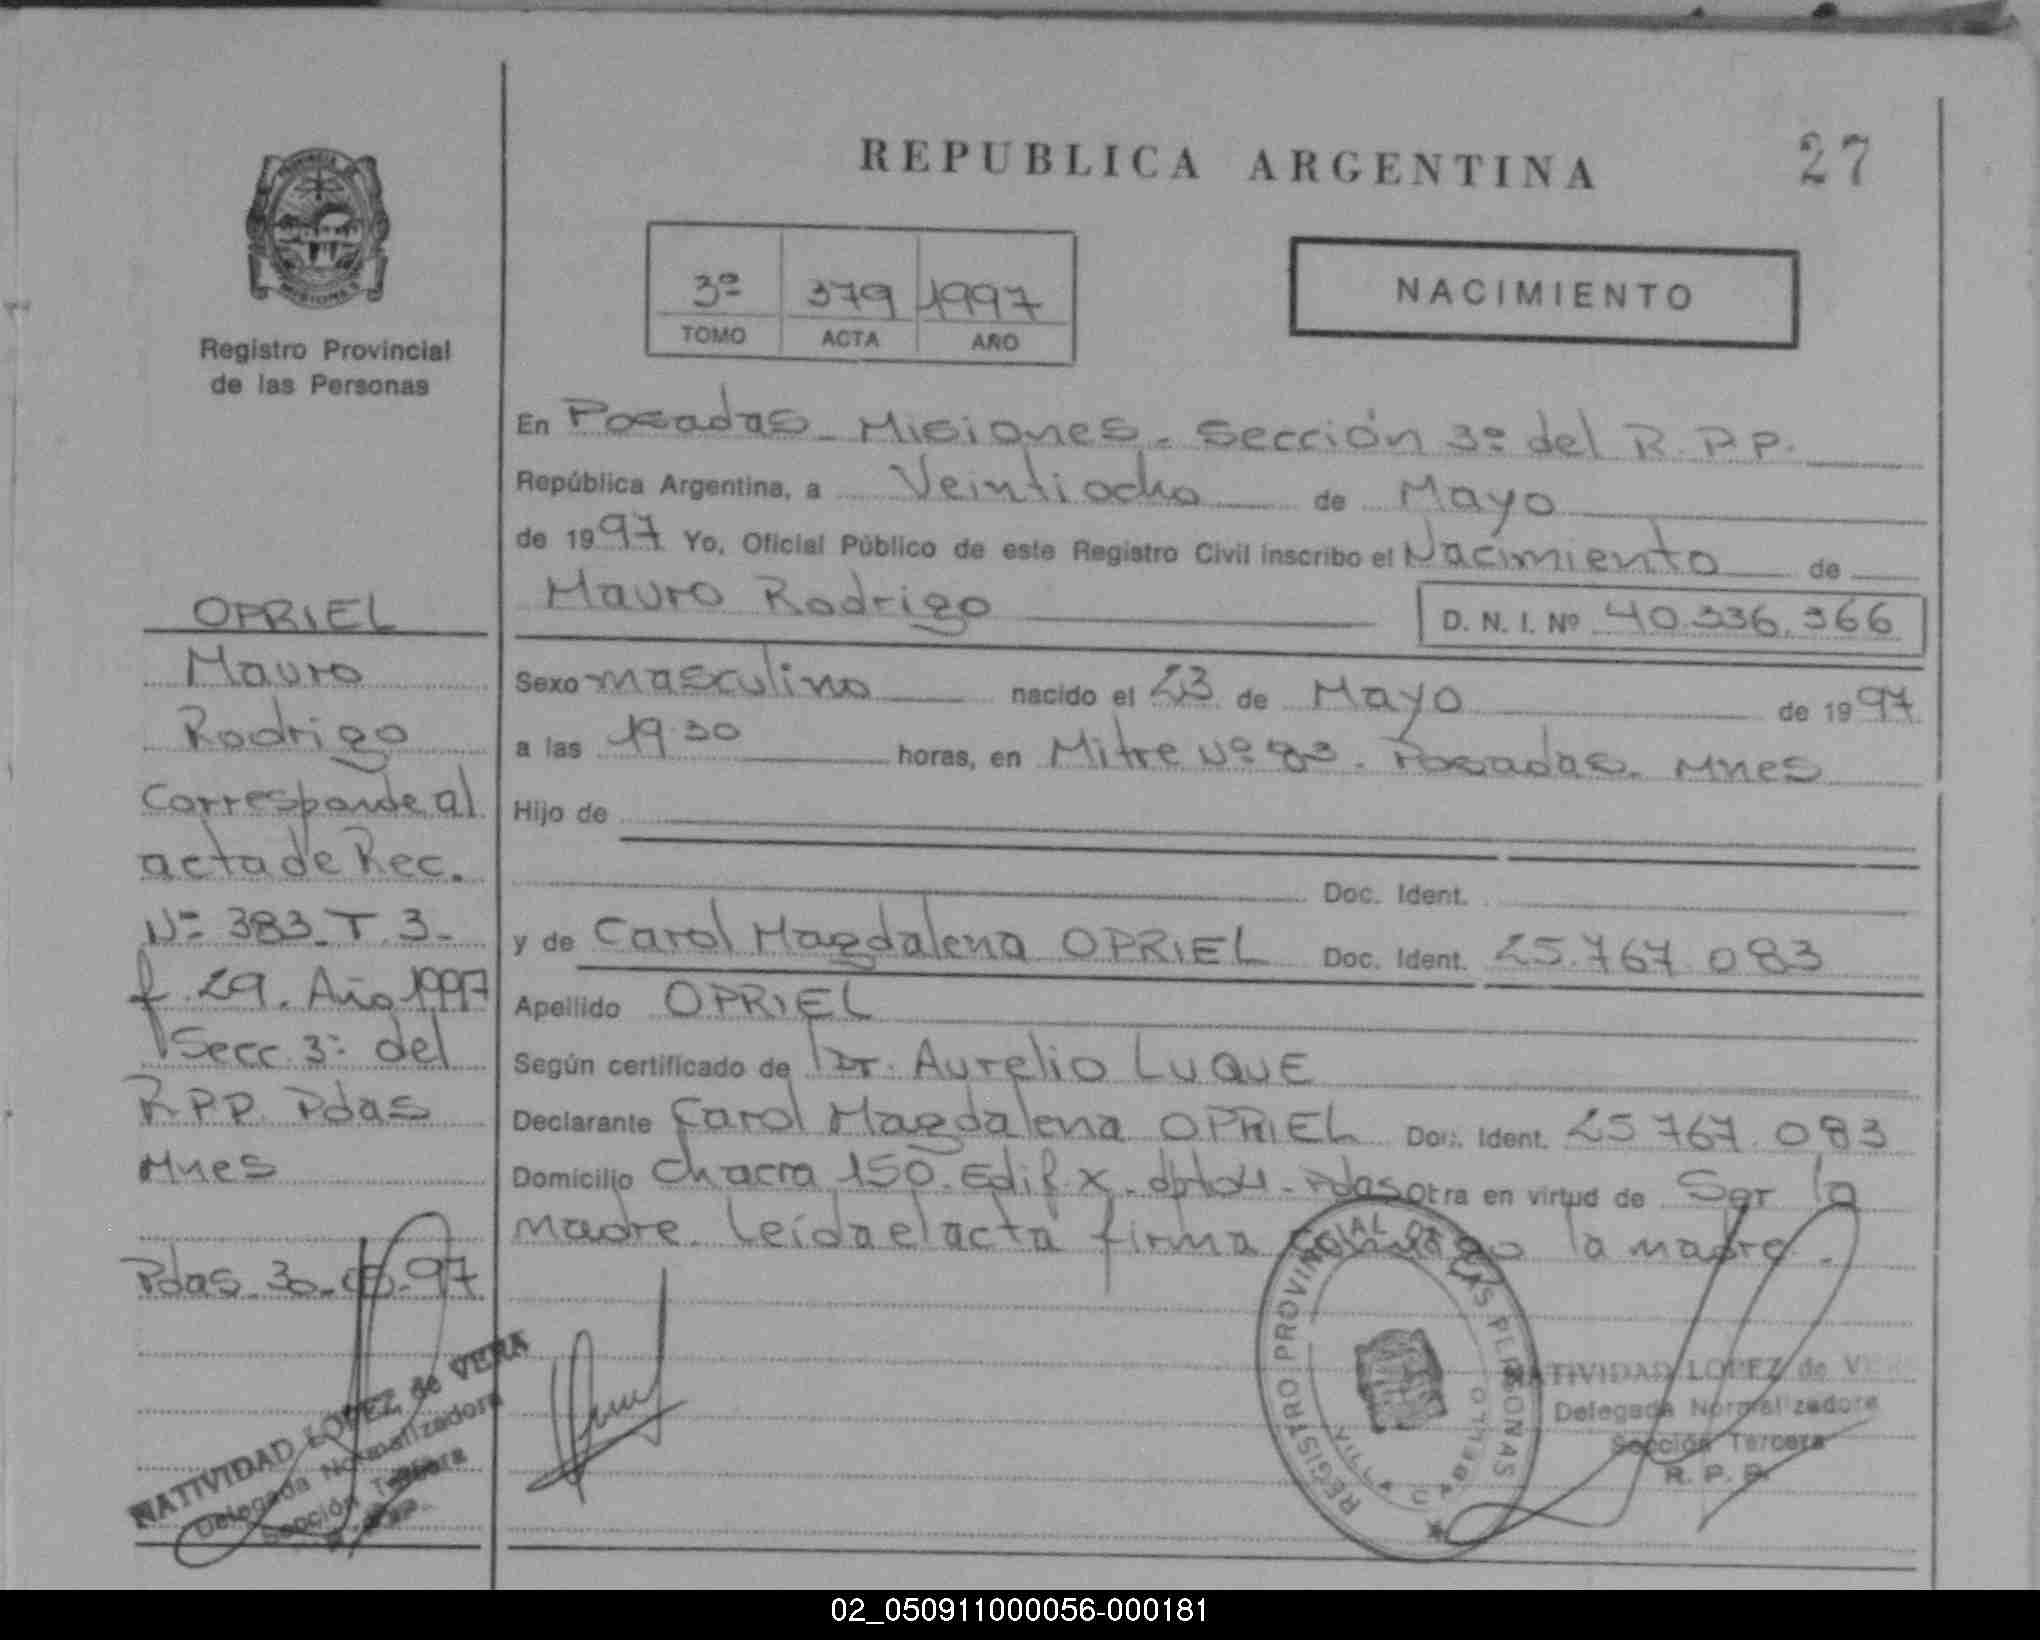 REPUBLICA ARGENTINA
27
3º 379 1997
TOMO ACTA AÑO
NACIMIENTO
Registro Provincial
de las Personas
En Posadas - Misiones - Sección 3º del R.P.P.
República Argentina, a Veintiocho de Mayo
de 1997 Yo, Oficial Público de este Registro Civil inscribo el Nacimiento de
Mauro Rodrigo D. N. I. Nº 40.336.366
Sexo masculino nacido el 23 de Mayo de 1997
a las 19.30 horas, en Mitre Nº 83. Posadas. Mnes
Hijo de
Doc. Ident.
y de Carol Magdalena OPRIEL Doc. Ident. 25.767.083
Apellido OPRIEL
Según certificado de Dr. Aurelio LUQUE
Declarante Carol Magdalena OPRIEL Doc. Ident. 25.767.083
Domicilio Chacra 150. Edif. X. dpto 4. Pdas otra en virtud de Ser la
madre. Leída el acta firma conmigo la madre.
OPRIEL
Mauro
Rodrigo
Corresponde al
acta de Rec.
Nº 383. T. 3.
f. 29. Año 1997
Secc. 3º del
R.P.P. Pdas
Mnes
Pdas. 30.05.97
NATIVIDAD LOPEZ de VERA
Delegada Normalizadora
Sección Tercera
REGISTRO PROVINCIAL DE LAS PERSONAS
NATIVIDAD LOPEZ de VERA
Delegada Normalizadora
Sección Tercera
R. P. P.
02_050911000056-000181